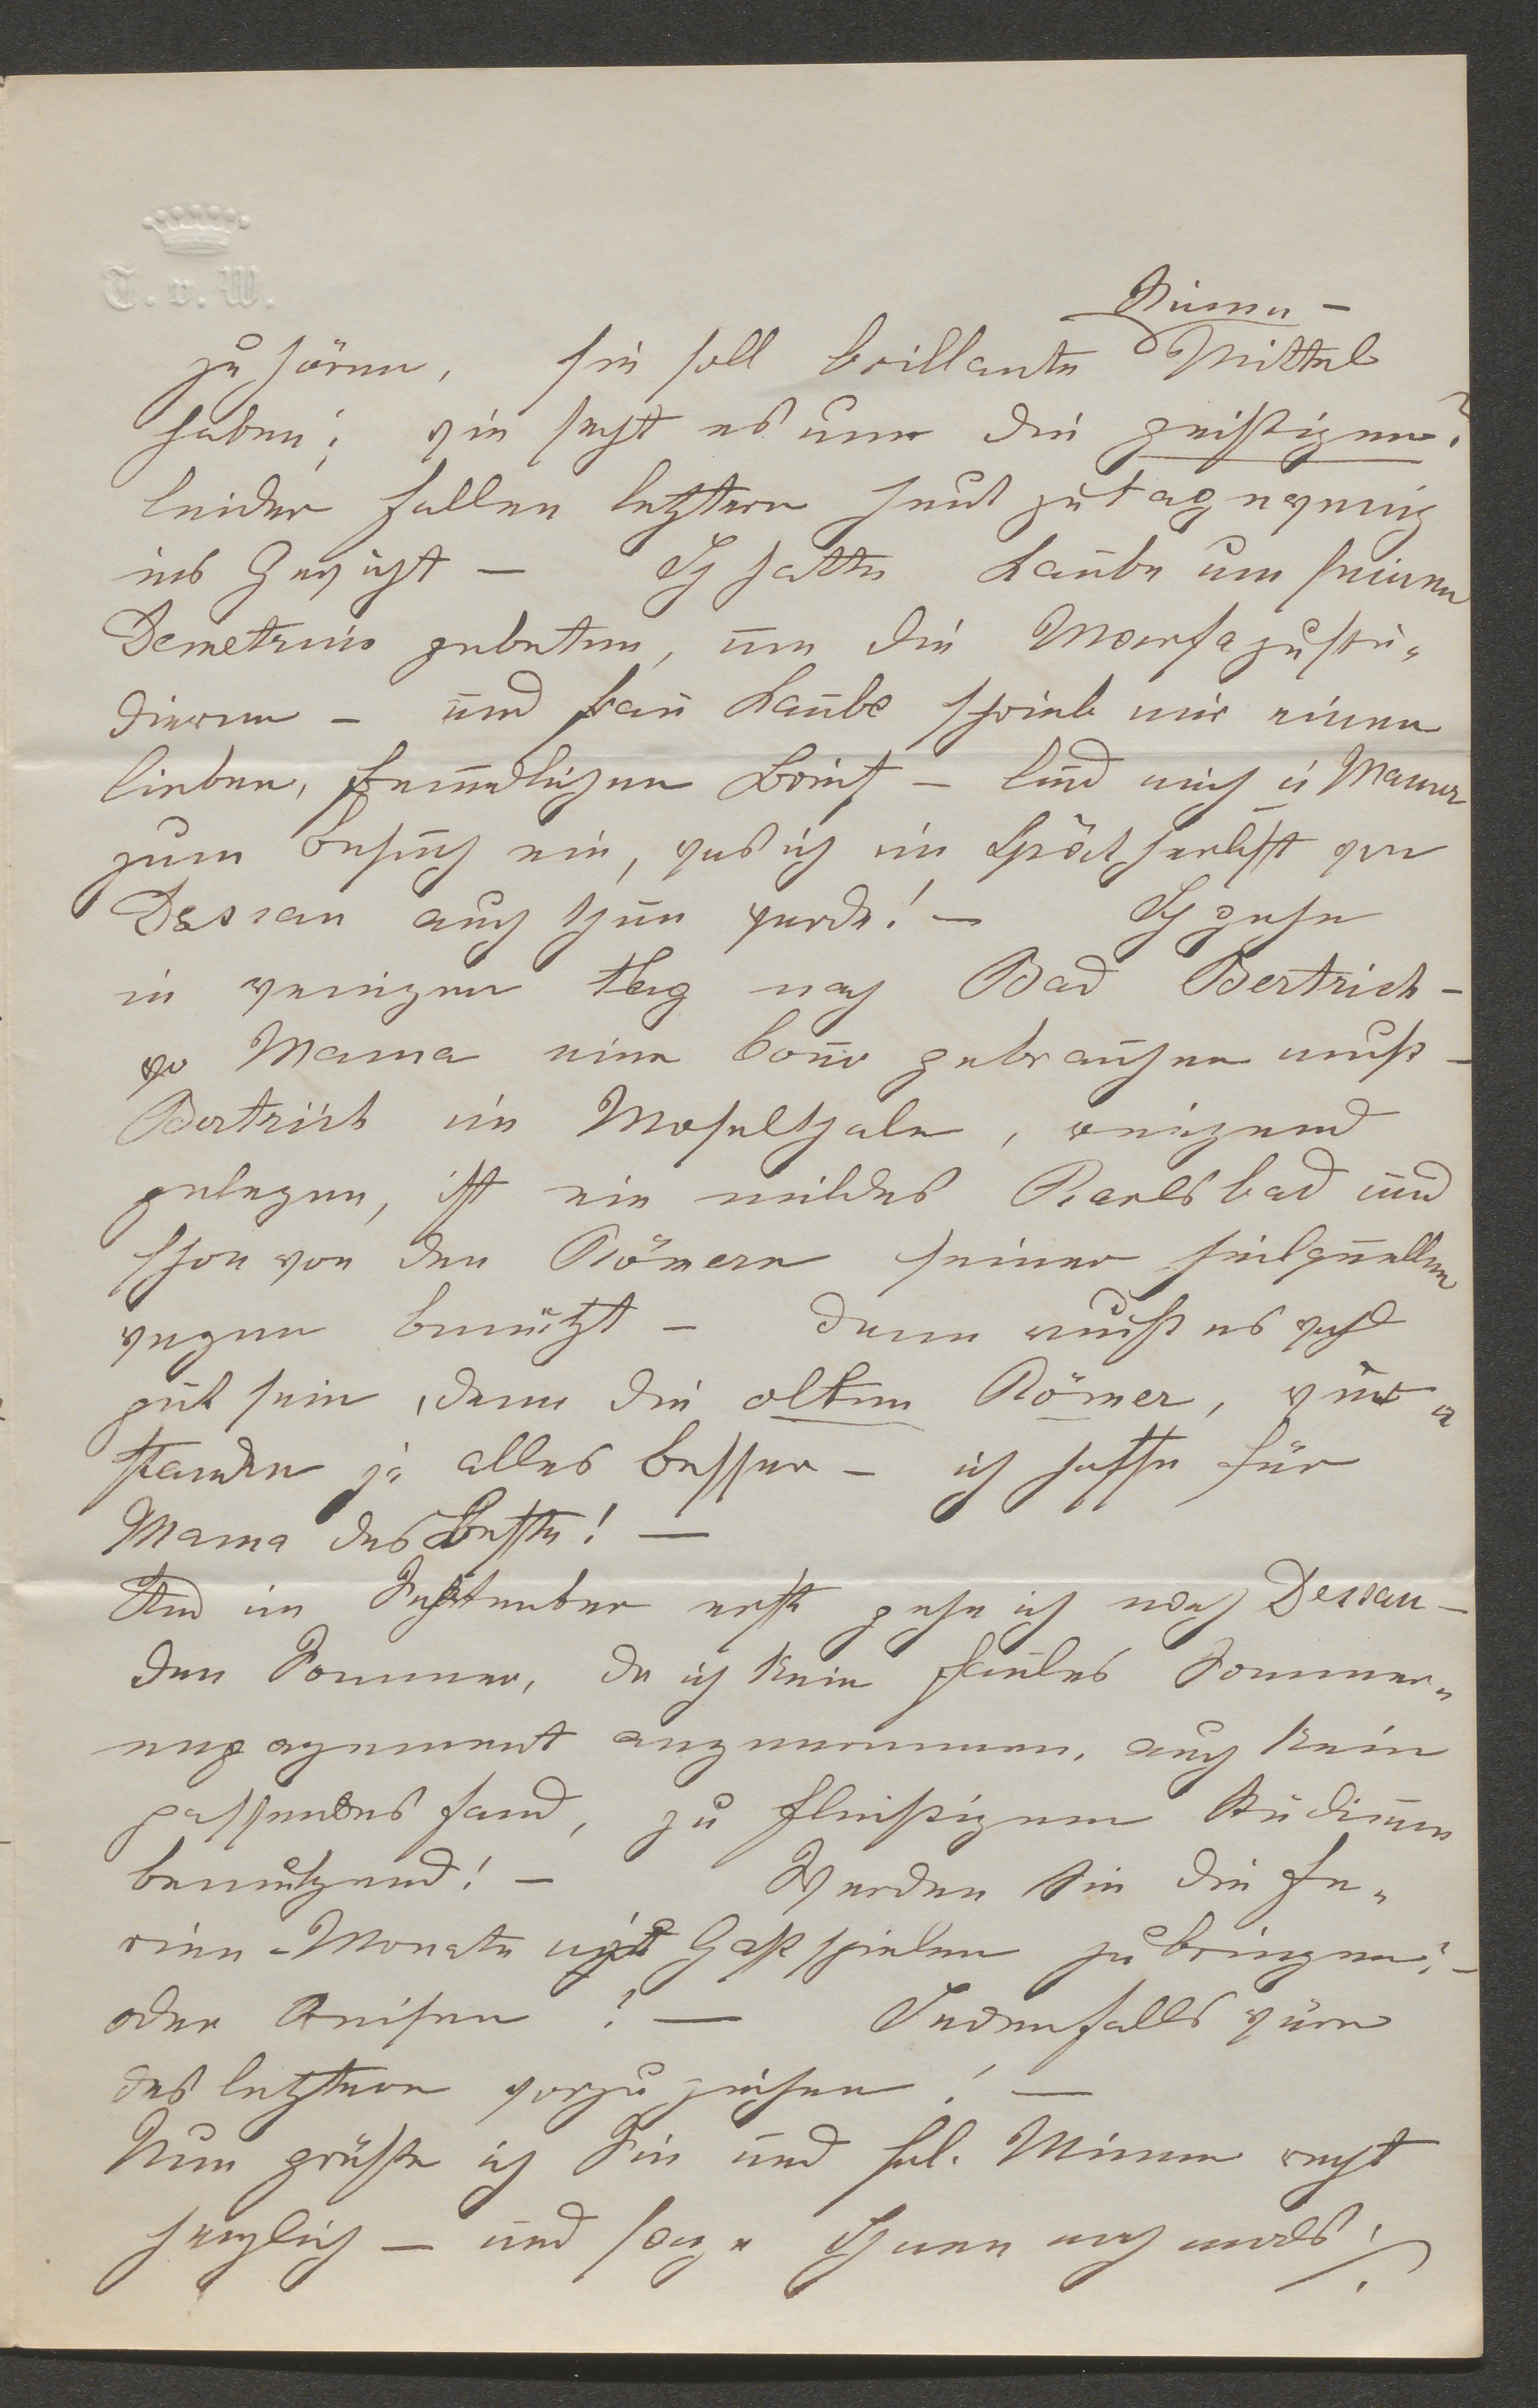 T. v. W.
Stimm-
zu hören, sie soll brillante Mittel
haben; wie steht es um die geistigen?
leider fallen letztere heut zutage wenig
ins Gewicht – Ich hatte Laube um seinen
Demetrius gebeten, um die Marfa zu stu-
dieren – und Frau Laube schrieb mir einen
lieben, freundlichen Brief – lud mich u Mama
zum Besuch ein, was ich im Spätherbst von
Dessau auch thun werde! – Ich gehe
in wenigen Tag nach Bad Bertrich –
wo Mama eine Cour gebrauchen muß –
Bertrich im Moselthale, reizend
gelegen, ist ein mildes Karlsbad und
schon von den Römern seiner Heilquellen
wegen benützt – dann muß es wohl
gut sein, denn die alten Römer, ver-
standen ja alles besser – ich hoffe für
Mama das Beste! –
End im September erst gehe ich nach Dessau –
den Sommer, da ich kein faules Sommer-
engagement angenommen, auch kein
passendes fand, zu fleißigem Studium
benutzend! – Werden Sie die Fe-
rien-Monate mit Gastspielen zubringen? –
oder Reisen? – Jedenfalls wäre
das letztere vorzuziehen! –
Nun grüße ich Sie und Frl. Minna recht
herzlich – und sage Ihnen nochmals